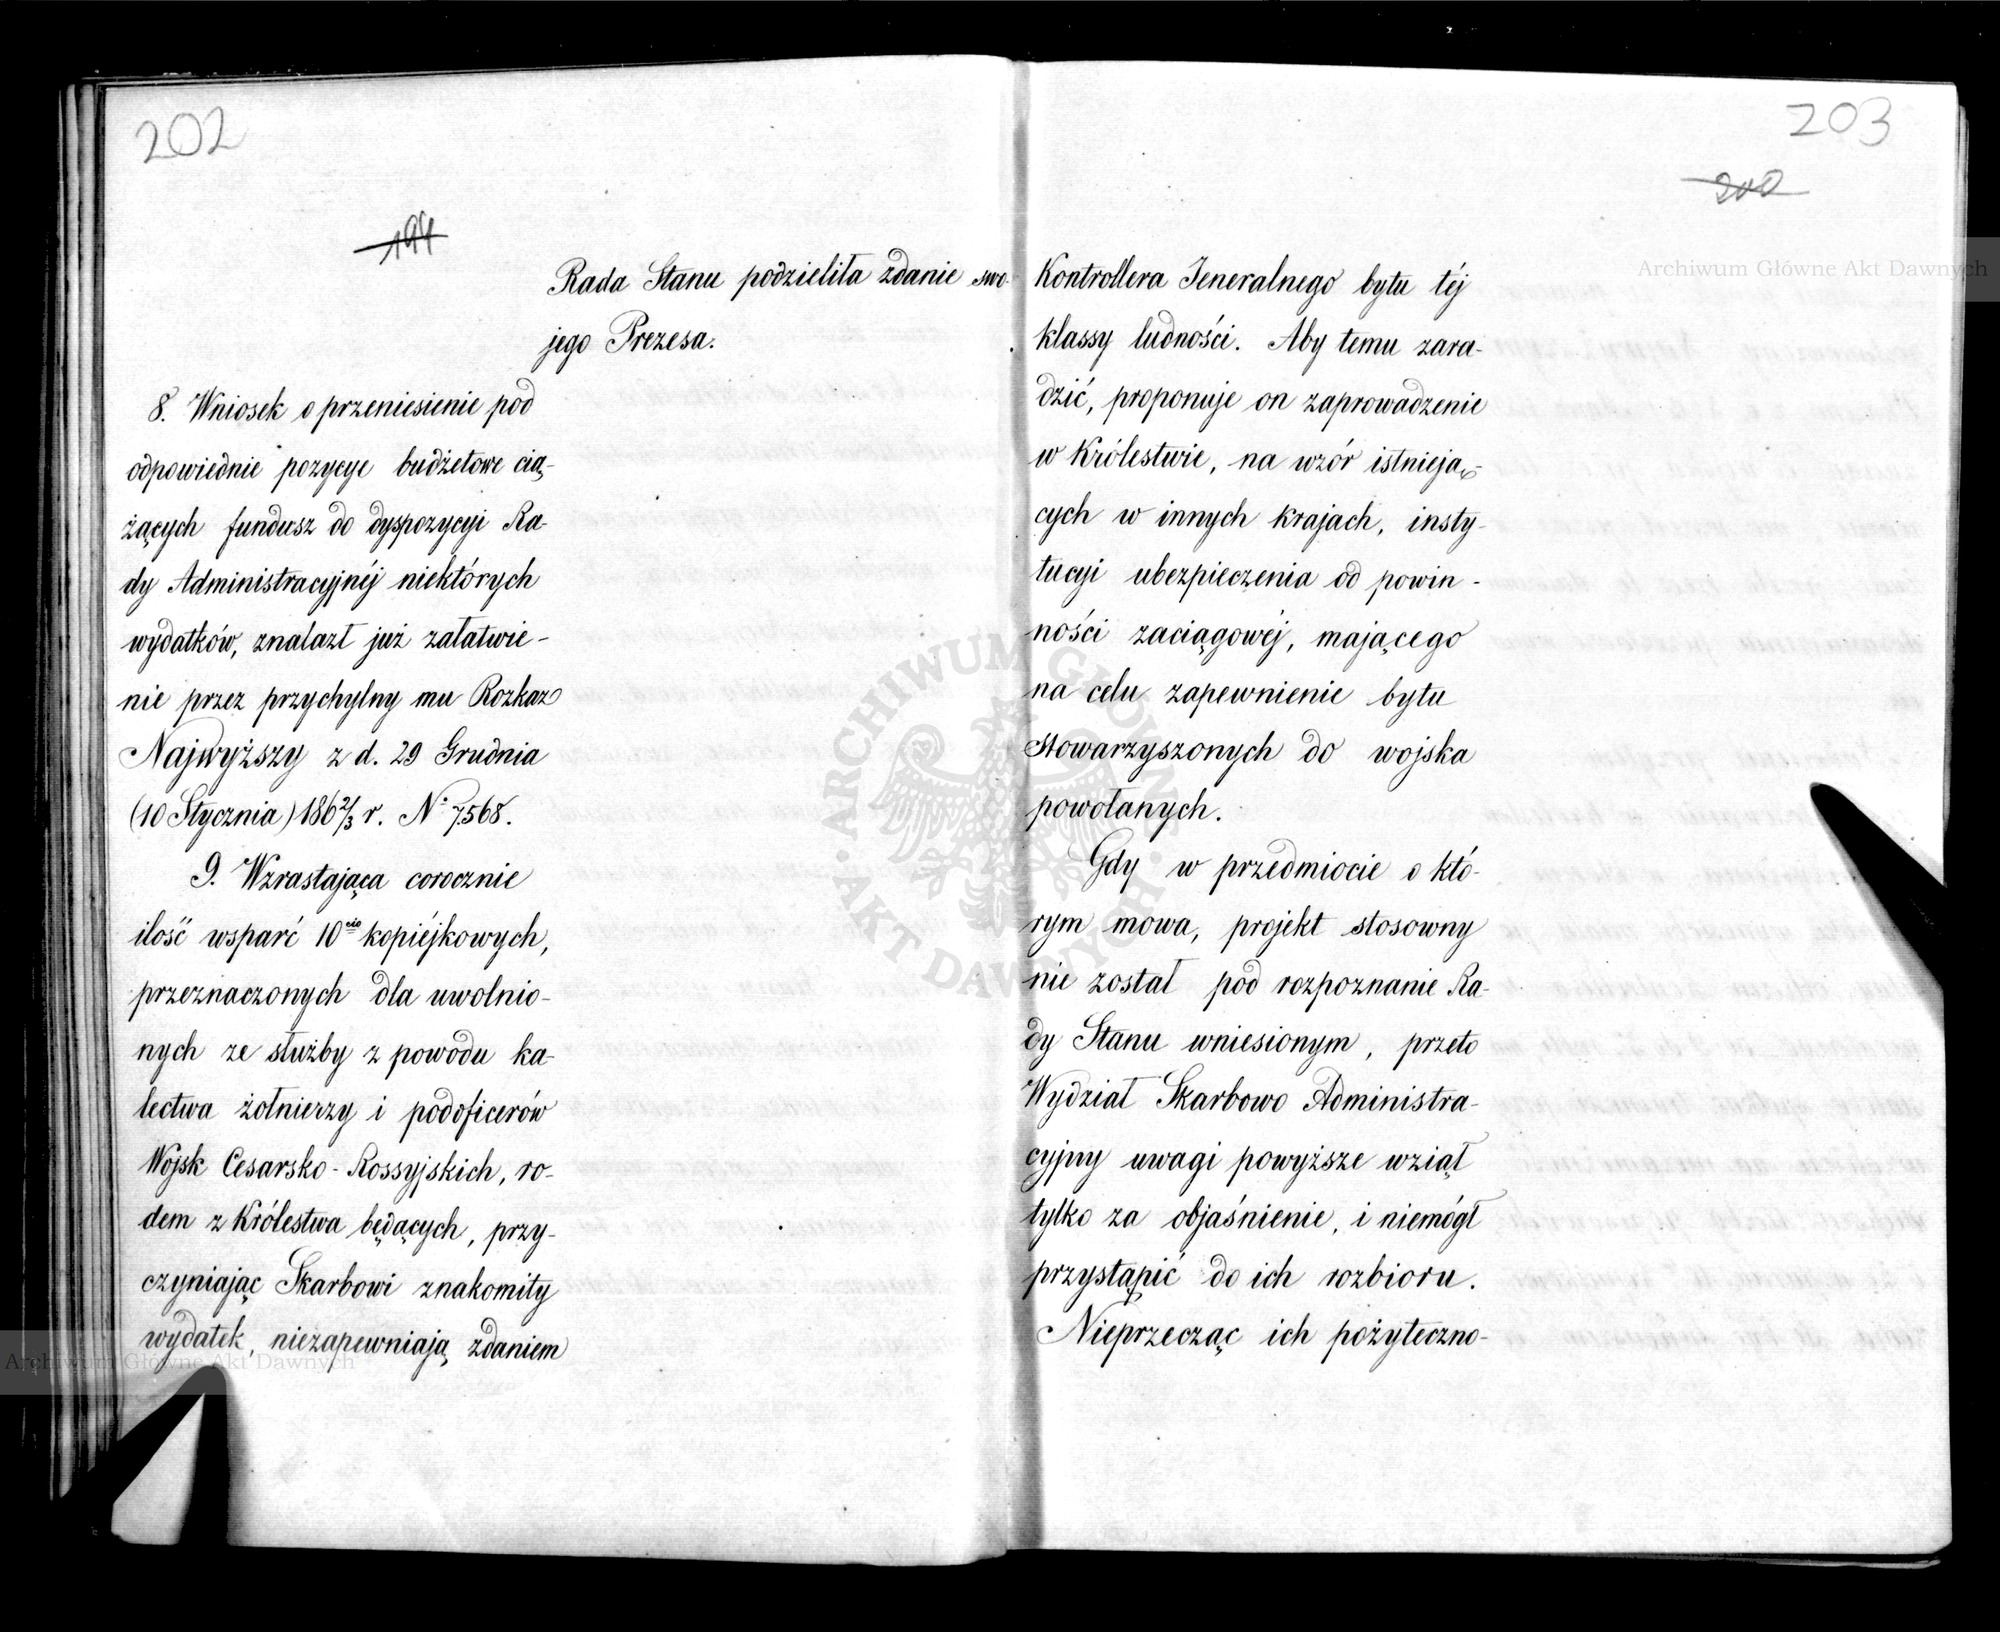 202
199
Rada Stanu podzieliła zdanie swo-
jego Prezesa.
8. Wniosek o przeniesienie pod
odpowiednie pozycye budżetowe cią-
żących fundusz do dyspozycyi Ra-
dy Administracyjnéj niektórych
wydatków, znalazł już załatwie-
nie przez przychylny mu Rozkaz
Najwyższy z d. 29 Grudnia
(10 Stycznia) 186 2/3 r. № 7568.
9. Wzrastająca corocznie
ilość wsparć 10cio kopiéjkowych,
przeznaczonych dla uwolnio-
nych ze służby z powodu ka-
lectwa żołnierzy i podoficerów
Wojsk Cesarsko-Rossyjskich, ro-
dem z Królestwa będących, przy-
czyniając Skarbowi znakomity
wydatek, niezapewniają zdaniem
203
200
Kontrollera Jeneralnego bytu téj
klassy ludności. Aby temu zara-
dzić, proponuje on zaprowadzenie
w Królestwie, na wzór istnieją-
cych w innych krajach, insty-
tucyi ubezpieczenia od powin-
ności zaciągowéj, mającego
na celu zapewnienie bytu
stowarzyszonych do wojska
powołanych.
Gdy w przedmiocie o któ-
rym mowa, projekt stosowny
nie został pod rozpoznanie Ra-
dy Stanu wniesionym, przeto
Wydział Skarbowo Administra-
cyjny uwagi powyższe wziął
tylko za objaśnienie, i niemógł
przystąpić do ich rozbioru.
Nieprzecząc ich pożyteczno-
Archiwum Główne Akt Dawnych
Archiwum Główne Akt Dawnych
ARCHIWUM GŁÓWNE
AKT DAWNYCH